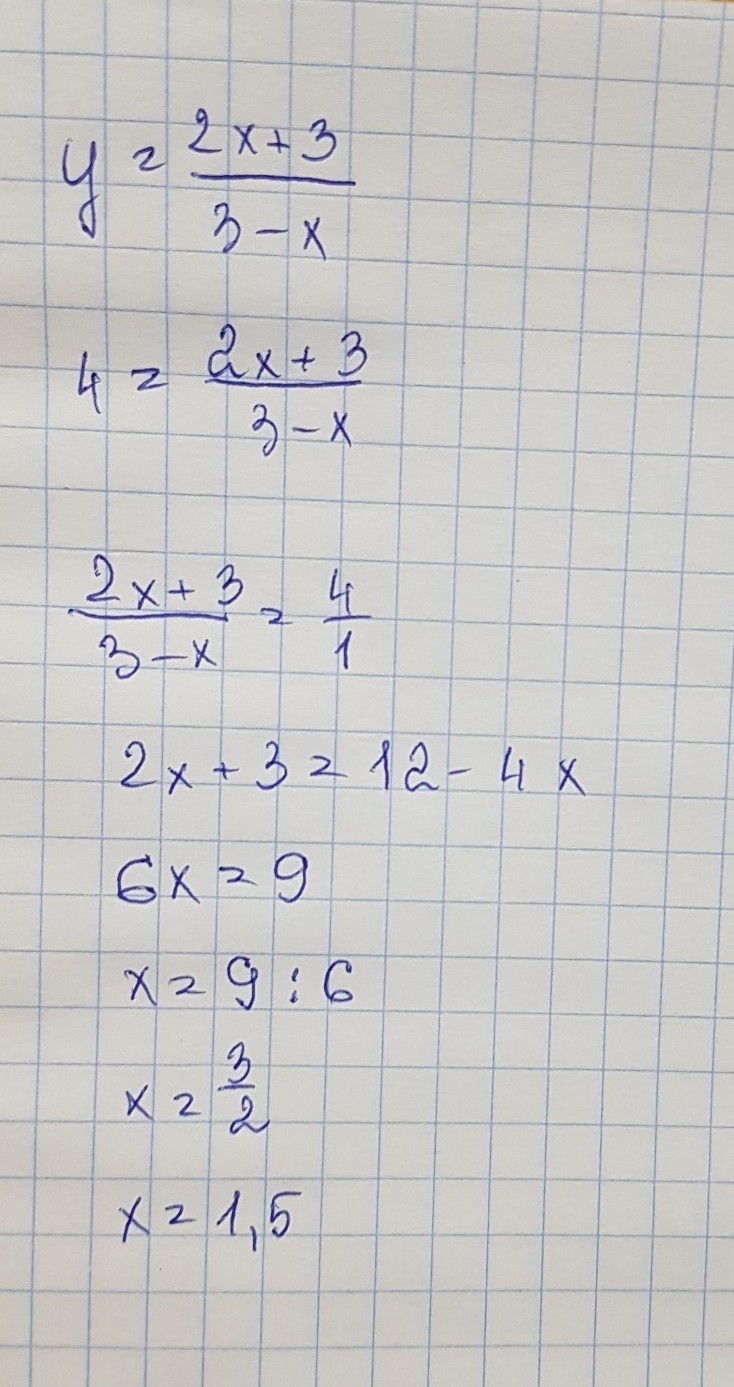 y = (2x+3)/(3-x)
4 = (2x+3)/(3-x)
(2x+3)/(3-x) = 4/1
2x+3=12-4x
6x=9
x=9:6
x=3/2
x=1,5